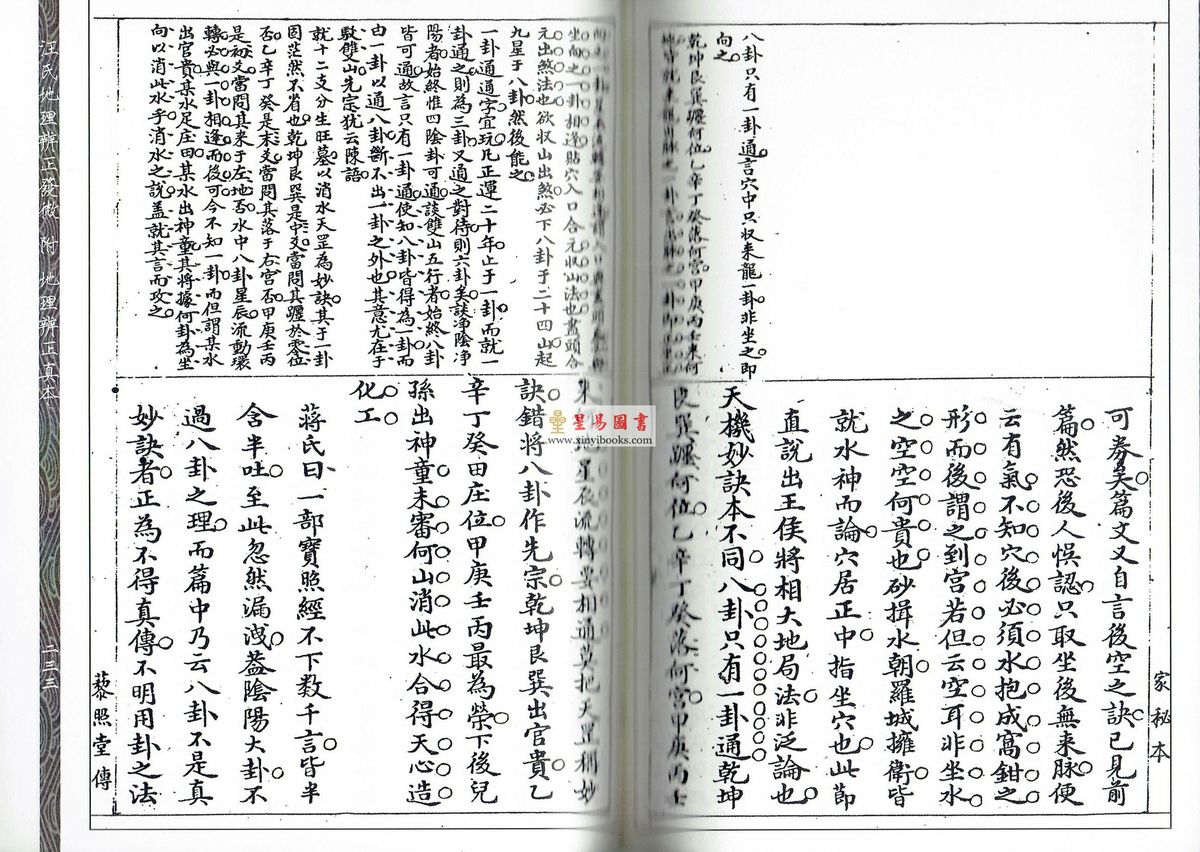 八卦只有一卦通言穴中只収来龍一卦非坐之即
向之
乾坤艮巽躔何位乙辛丁癸落何宫甲庚丙壬来何
可券矣篇文又自言後空之訣已見前
篇然恐後人悮認只取坐後無来脉便
云有氣不知穴後必須水抱成窩鉗之
形而後謂之到宮若但云空耳非坐水
之空空何貴也砂揖水朝羅城擁衛皆
就水神而論穴居正中指坐穴也此節
直説出王侯將相大地局法非泛論也
天機妙訣本不同八卦只有一卦通乾坤
艮巽躔何位乙辛丁癸落何宮甲庚丙壬
家秘本
坐向之一卦相逢貼穴入口合元収山法也盡頭合
元出煞法也欲収山出煞必下八卦于二十四山起
九星于八卦然後能之
一卦通通字宜玩凡正運二十年止于一卦而就一
卦通之則為三卦又通之對待則六卦矣談净陰净
陽者始終惟四陰卦可通談雙山五行者始終八卦
皆可通故言只有一卦通使知八卦皆得為一卦而
由一卦以通八卦斷不出一卦之外也其意尤在于
駁雙山先宗犹云陳語
就十二支分生旺墓以消水天罡為妙訣其于一卦
固茫然不省也乾坤艮巽是中爻當問其躔於零位
否乙辛丁癸是末爻當問其落于右宮否甲庚壬丙
是初爻當問其来于左地否水中八卦星辰流動環
轉必與一卦相逢而後可今不知一卦而但謂某水
出官貴某水足庄田某水出神童其將據何卦為坐
向以消此水乎消水之說盖就其言而攻之
来何地星辰流轉要相逢莫把天罡稱妙
訣錯將八卦作先宗乾坤艮巽出官貴乙
辛丁癸田庄位甲庚壬丙最為榮下後兒
孫出神童未審何山消此水合得天心造
化工
蔣氏曰一部寶照經不下数千言皆半
含半吐至此忽然漏洩葢陰陽大卦不
過八卦之理而篇中乃云八卦不是真
妙訣者正為不得真傳不明用卦之法
藜照堂傳
汪氏地理辨正發微 附地理辨正真本
二三三
星易圖書
www.xinyibooks.com